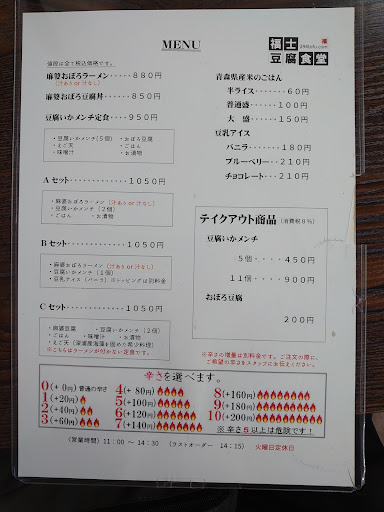 MENU
福士
豆腐食堂
値段は全て税込価格です。
麻婆おぼろラーメン・・・・・880円
(汁あり or 汁なし)
麻婆おぼろ豆腐丼・・・・・850円
豆腐いかメンチ定食・・・・950円
・豆腐いかメンチ(5個) ・おぼろ豆腐
・えご天 ・ごはん
・味噌汁 ・お漬物
Aセット・・・・・・・・・・・・1050円
・麻婆おぼろラーメン(汁あり or 汁なし)
・豆腐いかメンチ(2個)
・ごはん ・お漬物
Bセット・・・・・・・・・・・・1050円
・麻婆おぼろラーメン(汁あり or 汁なし)
・豆腐いかメンチ(1個)
・豆乳アイス(バニラ)※トッピングは別料金
Cセット・・・・・・・・・・・・1050円
・麻婆豆腐 ・豆腐いかメンチ(2個)
・ごはん ・味噌汁 ・お漬物
※こちらはラーメンが付かない定食です。
青森県産米のごはん
半ライス・・・・・60円
普通盛・・・・・100円
大 盛・・・・・150円
豆乳アイス
バニラ・・・・・180円
ブルーベリー・・210円
チョコレート・・210円
テイクアウト商品(消費税8%)
豆腐いかメンチ
5個・・・・450円
11個・・・・900円
おぼろ豆腐
200円
※辛さの増量は別料金です。ご注文の際に、
ご希望の辛さをスタッフにお伝えください。
辛さを選べます。
0(+0円)普通の辛さ
1(+20円)
2(+40円)
3(+60円)
4(+80円)
5(+100円)
6(+120円)
7(+140円)
8(+160円)
9(+180円)
10(+200円)
※辛さ5以上は危険です!
(営業時間)11:00 ~ 14:30 (ラストオーダー 14:15) 火曜日定休日